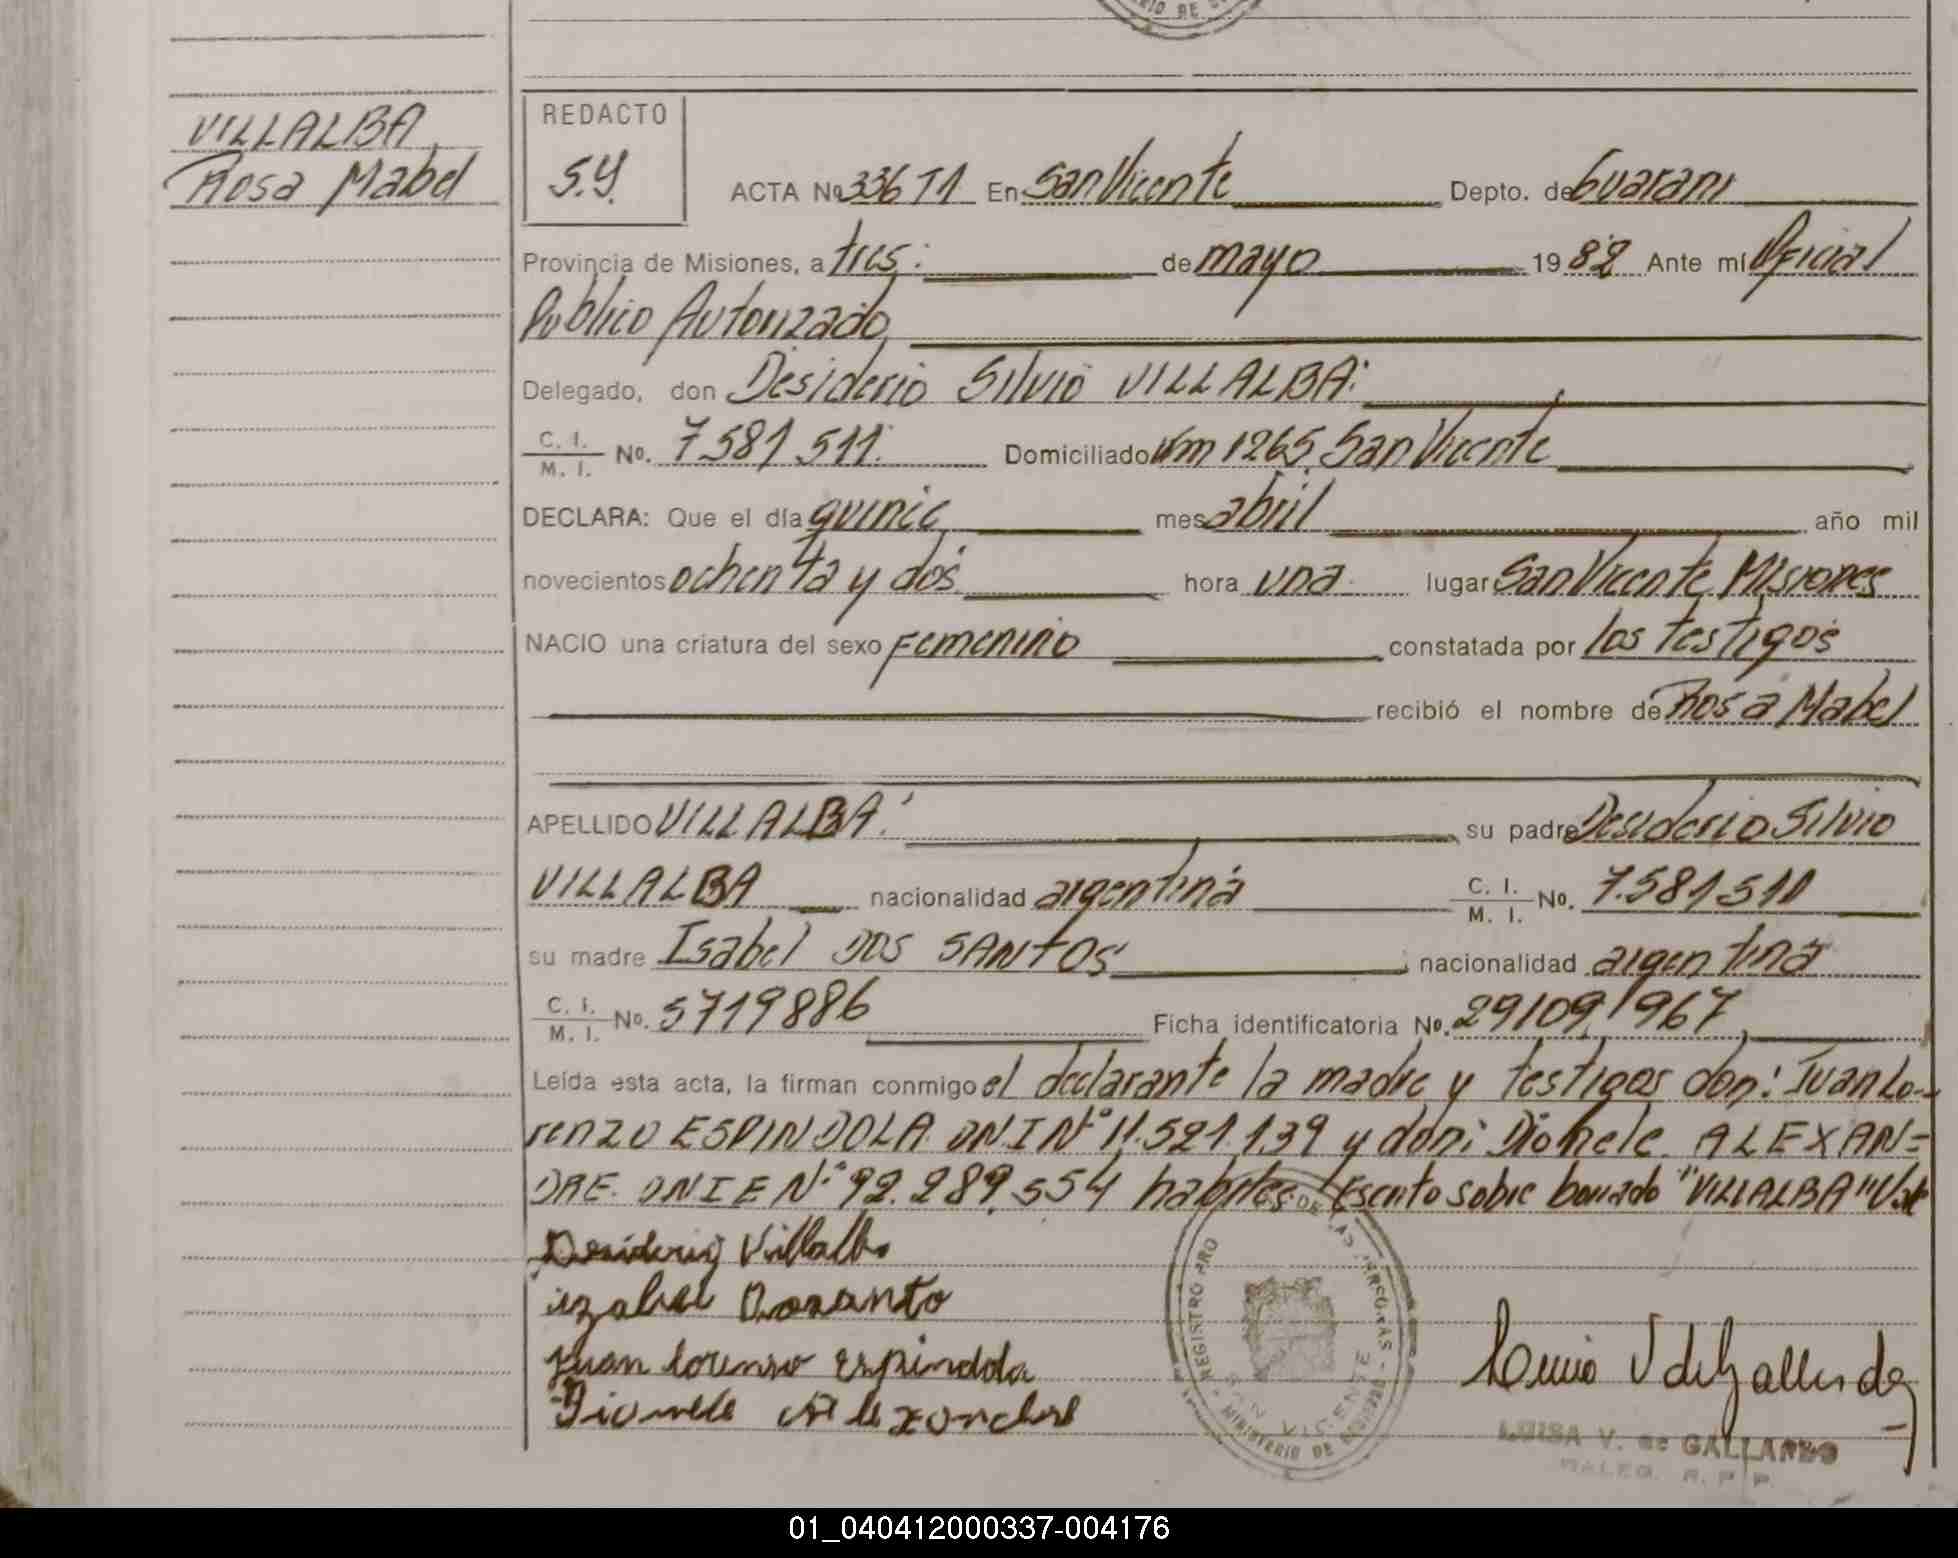 RIO DE
VILLALBA
Rosa Mabel
REDACTO
S.Y.
ACTA No 336 T1 En San Vicente Depto. de Guarani
Provincia de Misiones, a tres: de mayo 1982 Ante mí Oficial
Publico Autorizado
Delegado, don Desiderio Silvio VILLALBA:
C. I. / M. I. No. 7581511. Domiciliado Km 1265 San Vicente
DECLARA: Que el día quince mes abril año mil
novecientos ochenta y dos hora una lugar San Vicente Misiones
NACIO una criatura del sexo Femenino constatada por los testigos
recibió el nombre de Rosa Mabel
APELLIDO VILLALBA: su padre Desiderio Silvio
VILLALBA nacionalidad argentina C. I. / M. I. No. 7.581511
su madre Isabel DOS SANTOS nacionalidad argentina
C. I. / M. I. No. 5719886 Ficha identificatoria No. 29/09/967
Leída esta acta, la firman conmigo el declarante la madre y testigos don: Juan Lo-
renzo ESPINDOLA DNI Nº 11.521.139 y don: Dionele ALEXAN=
DRE. DNIE Nº 92.289.554 habiles Escrito sobre borrado "VILLALBA" Vale
Desiderio Villalba
izabel Dosanto
Juan lorenso Espindola
Dionele Alexandre
REGISTRO PRO DE LAS PERSONAS - MINISTERIO DE
SAN VICENTE
V de Gallardo
LUISA V. de GALLARDO
DALEG. R. P. P.
01_040412000337-004176